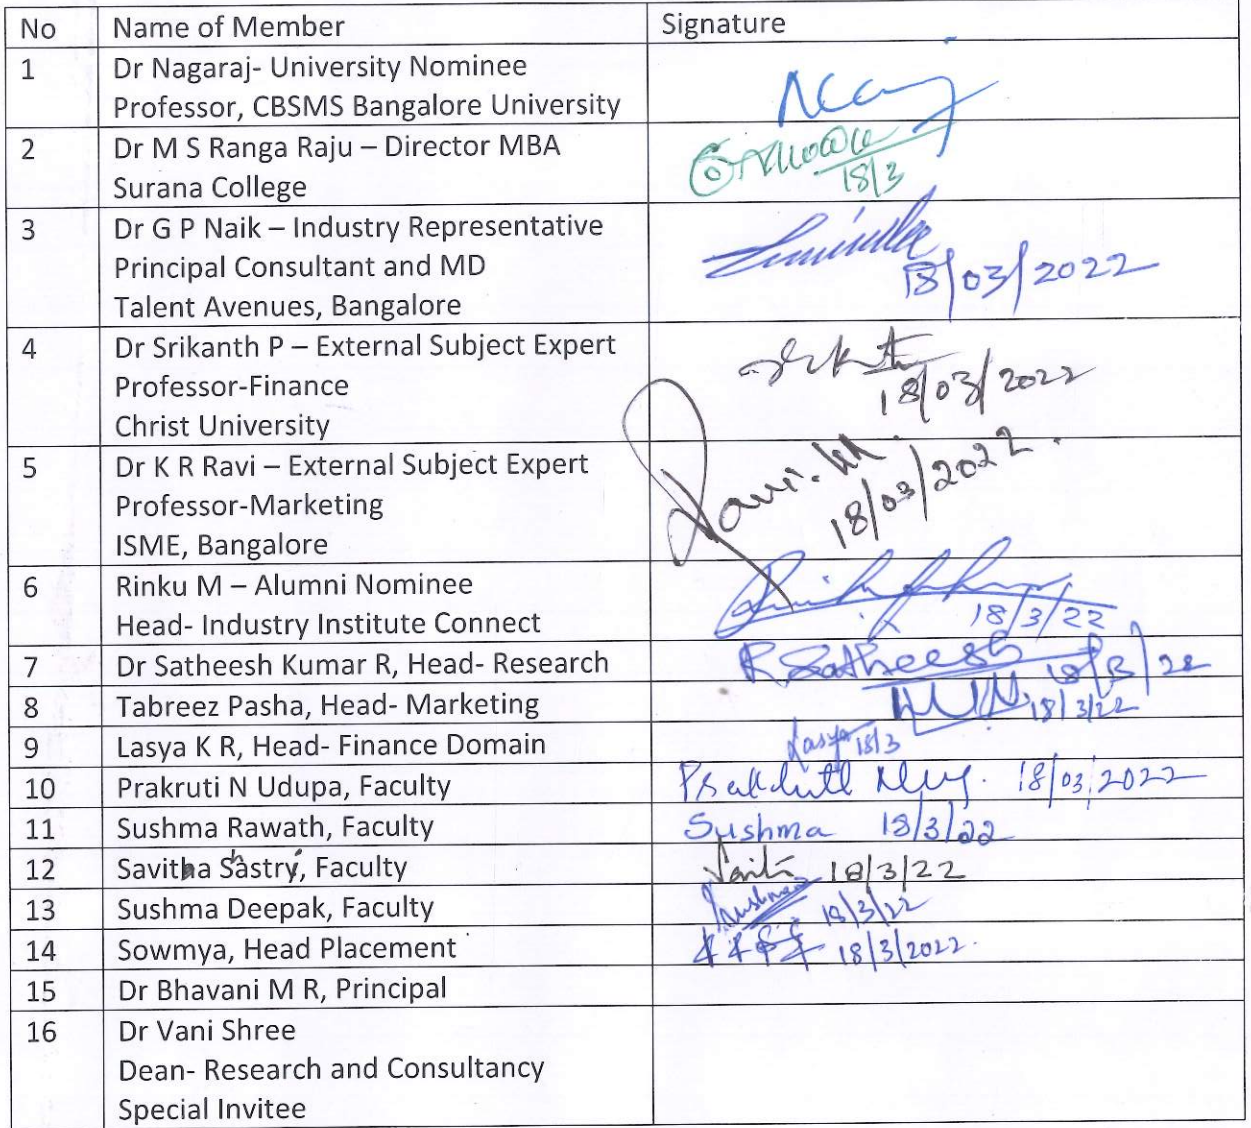 No Name of Member Signature
1 Dr Nagaraj- University Nominee
Professor, CBSMS Bangalore University
2 Dr M S Ranga Raju – Director MBA
Surana College 18/3
3 Dr G P Naik – Industry Representative
Principal Consultant and MD 18/03/2022
Talent Avenues, Bangalore
4 Dr Srikanth P – External Subject Expert
Professor-Finance 18/03/2022
Christ University
5 Dr K R Ravi – External Subject Expert
Professor-Marketing 18/03/2022
ISME, Bangalore
6 Rinku M – Alumni Nominee
Head- Industry Institute Connect 18/3/22
7 Dr Satheesh Kumar R, Head- Research R Satheesh
8 Tabreez Pasha, Head- Marketing 18/3/22
9 Lasya K R, Head- Finance Domain Lasya 18/3
10 Prakruti N Udupa, Faculty 18/03/2022
11 Sushma Rawath, Faculty Sushma 18/3/22
12 Savitha Shastry, Faculty 18/3/22
13 Sushma Deepak, Faculty 18/3/22
14 Sowmya, Head Placement 18/3/2022
15 Dr Bhavani M R, Principal
16 Dr Vani Shree
Dean- Research and Consultancy
Special Invitee